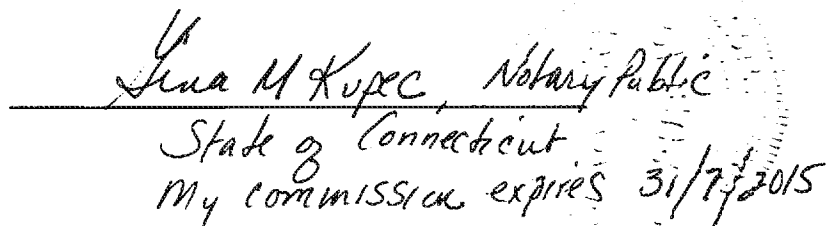 Gina M Kupec, Notary Public
State of Connecticut
My commission expires